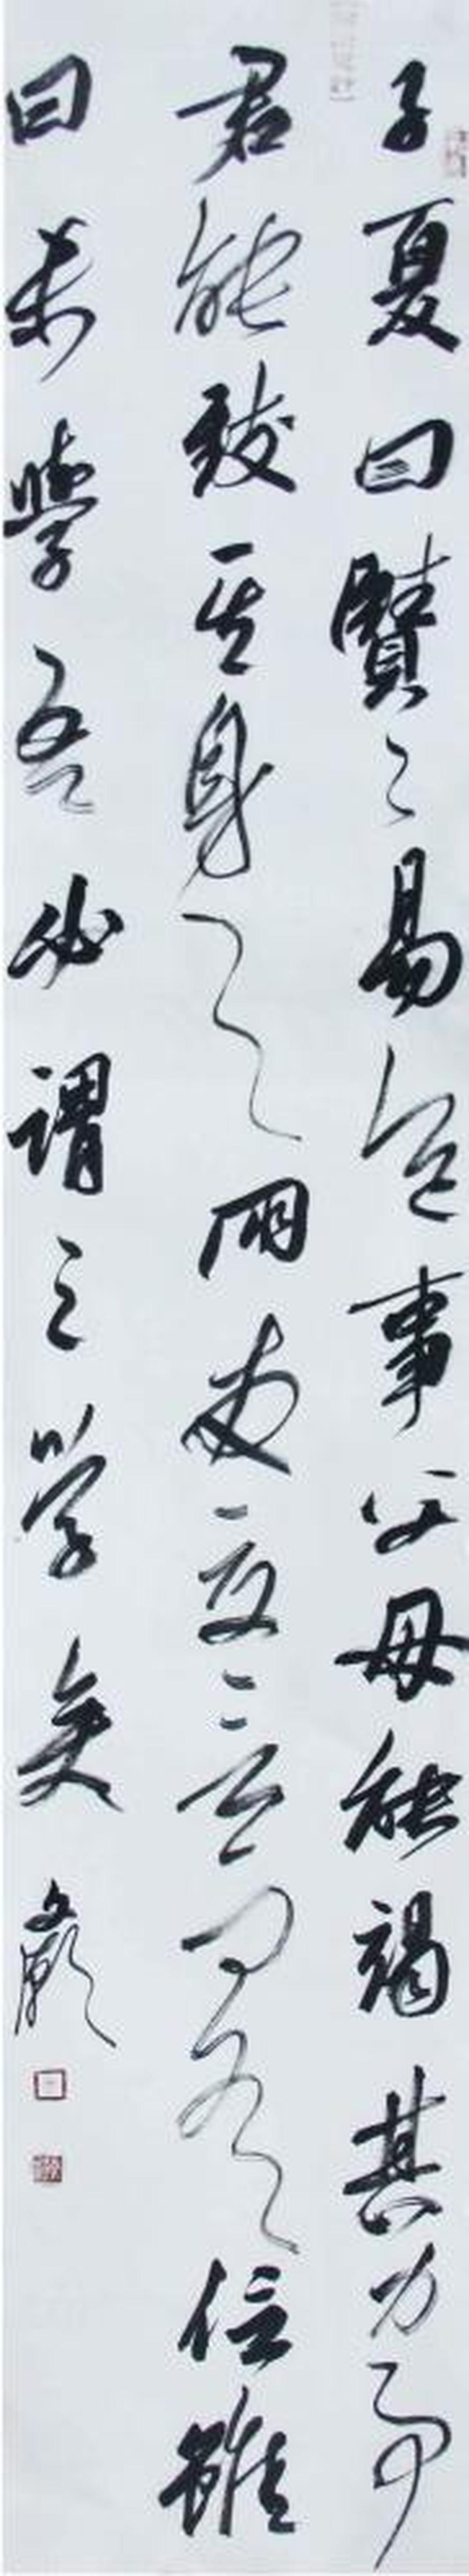 子夏曰賢々易色事父母能竭其力事
君能致其身與朋友交言而有信雖
曰未學吾必謂之學矣